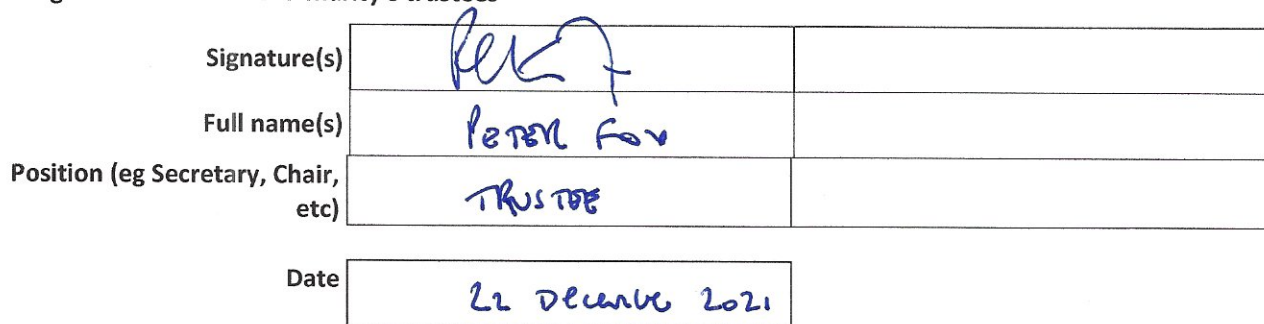 trustees
Signature(s)
Full name(s) PETER FOX
Position (eg Secretary, Chair,
etc) TRUSTEE
Date 22 December 2021